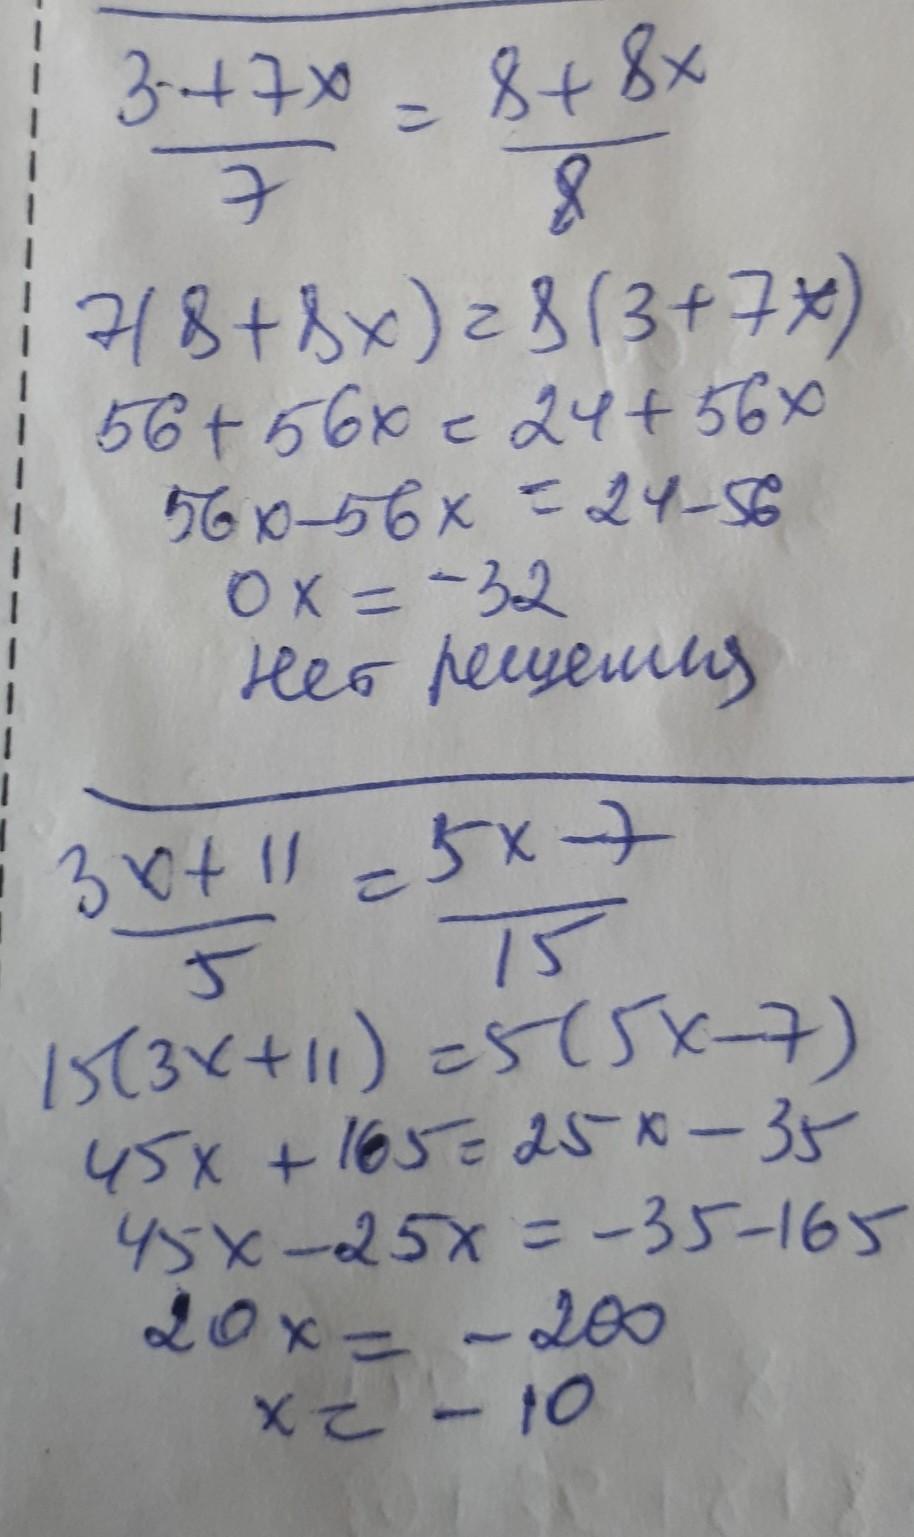 3+7x = 8+8x
7 8
7(8+8x)=8(3+7x)
56+56x=24+56x
56x-56x=24-56
0x=-32
Нет решения
3x+11 = 5x-7
5 15
15(3x+11)=5(5x-7)
45x+165=25x-35
45x-25x=-35-165
20x=-200
x=-10